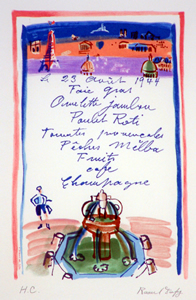 le 23 août 1944
Foie gras
Omelette Jambon
Poulet Roti
Tomates provencales
Pêches Melba
Fruits
cafe
Champagne
H.C
Raoul Dufy